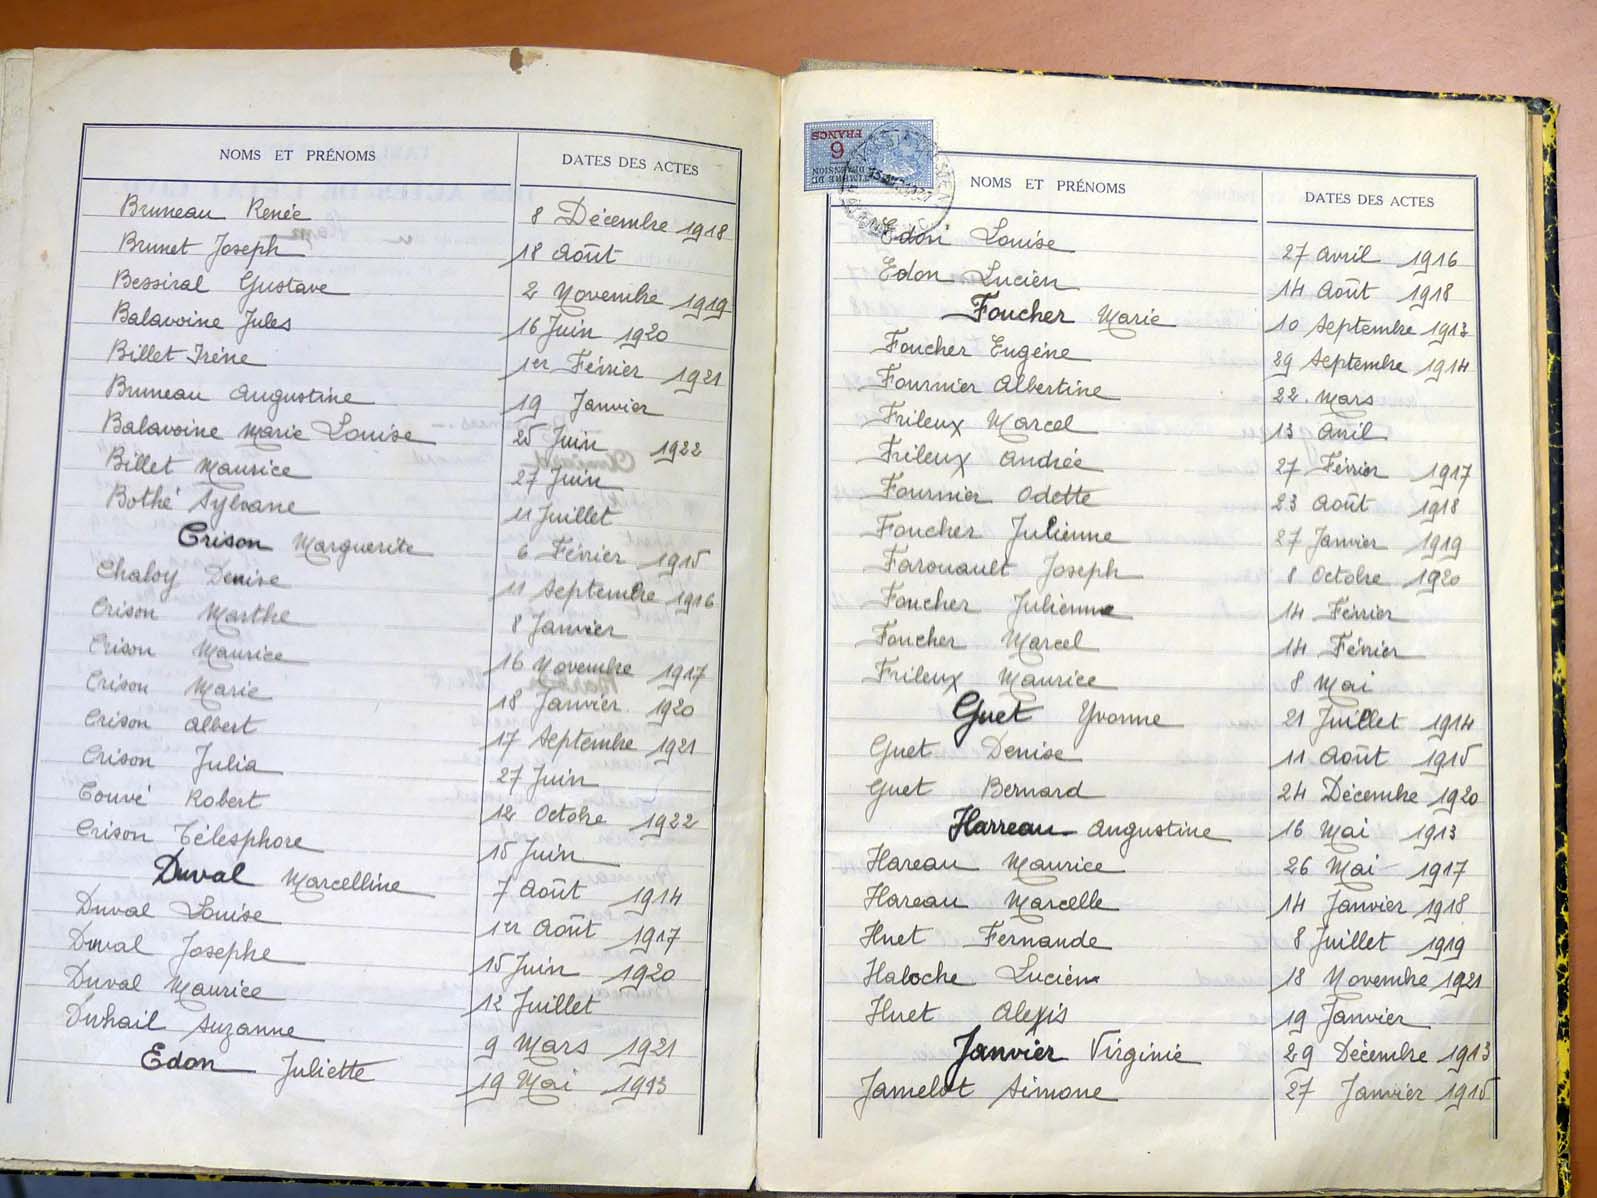 NOMS ET PRÉNOMS DATES DES ACTES
Bruneau Renée 8 Décembre 1918
Brunet Joseph 18 Août
Bessiral Gustave 2 Novembre 1919
Balavoine Jules 16 Juin 1920
Billet Irène 1er Février 1921
Bruneau Augustine 19 Janvier
Balavoine Marie Louise 25 Juin 1922
Billet Maurice 27 Juin
Bothé Sylvane 11 Juillet
Crison Marguerite 6 Février 1915
Chaloy Denise 11 Septembre 1916
Crison Marthe 8 Janvier
Crison Maurice 16 Novembre 1917
Crison Marie 18 Janvier 1920
Crison Albert 17 Septembre 1921
Crison Julia 27 Juin
Couvé Robert 12 Octobre 1922
Crison Télesphore 15 Juin
Duval Marcelline 7 Août 1914
Duval Louise 1er Août 1917
Duval Josephe 15 Juin 1920
Duval Maurice 12 Juillet
Duhail Suzanne 9 Mars 1921
Edon Juliette 19 Mai 1913
TIMBRE DE DIMENSION
6
FRANCS
NOMS ET PRÉNOMS DATES DES ACTES
Edon Louise 27 Avril 1916
Edon Lucien 14 Août 1918
Foucher Marie 10 Septembre 1913
Foucher Eugène 29 Septembre 1914
Fournier Albertine 22 Mars
Frileux Marcel 13 Avril
Frileux Andrée 27 Février 1917
Fournier Odette 23 Août 1918
Foucher Julienne 27 Janvier 1919
Farouault Joseph 8 Octobre 1920
Foucher Julienne 14 Février
Foucher Marcel 14 Février
Frileux Maurice 8 Mai
Guet Yvonne 21 Juillet 1914
Guet Denise 11 Août 1915
Guet Bernard 24 Décembre 1920
Harreau Augustine 16 Mai 1913
Hareau Maurice 26 Mai 1917
Hareau Marcelle 14 Janvier 1918
Huet Fernande 8 Juillet 1919
Haloche Lucien 18 Novembre 1921
Huet Alexis 19 Janvier
Janvier Virginie 29 Décembre 1913
Jamelot Simone 27 Janvier 1915